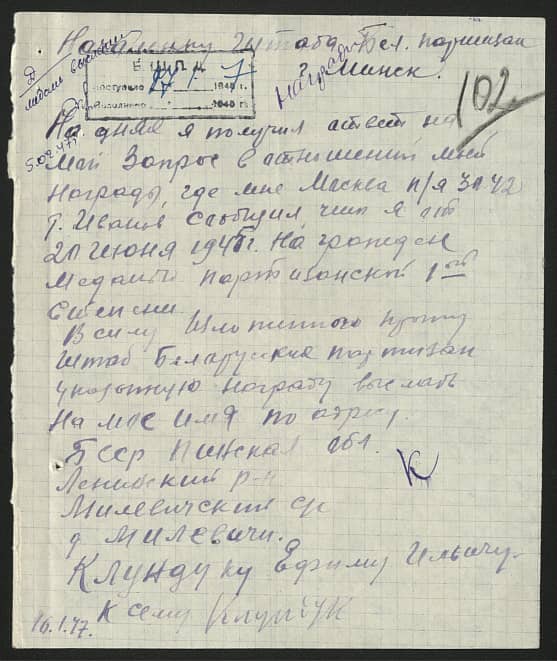 Начальнику Штаба Бел. партизан
г. Минск.
Награды
Б Ш П Д
Поступило 194 г.
194 г.
102
5.02.47г.
На днях я получил ответ на
мой Запрос в отношений мней
награды, где мне Москва п/я 3142
т. Иванов сообщил, что я от
20 июня 1945г. Награжден
медалью партизанской 1ой
степени
В силу Изложенного прошу
Штаб Беларуских партизан
указанную награду выслать
на мое имя по адресу.
БССР Пинская обл.
Ленинский р-н
Милевичский с/с
д. Милевичи.
Клундуку Ефиму Ильичу.
К сему Клундук
16.1.47.